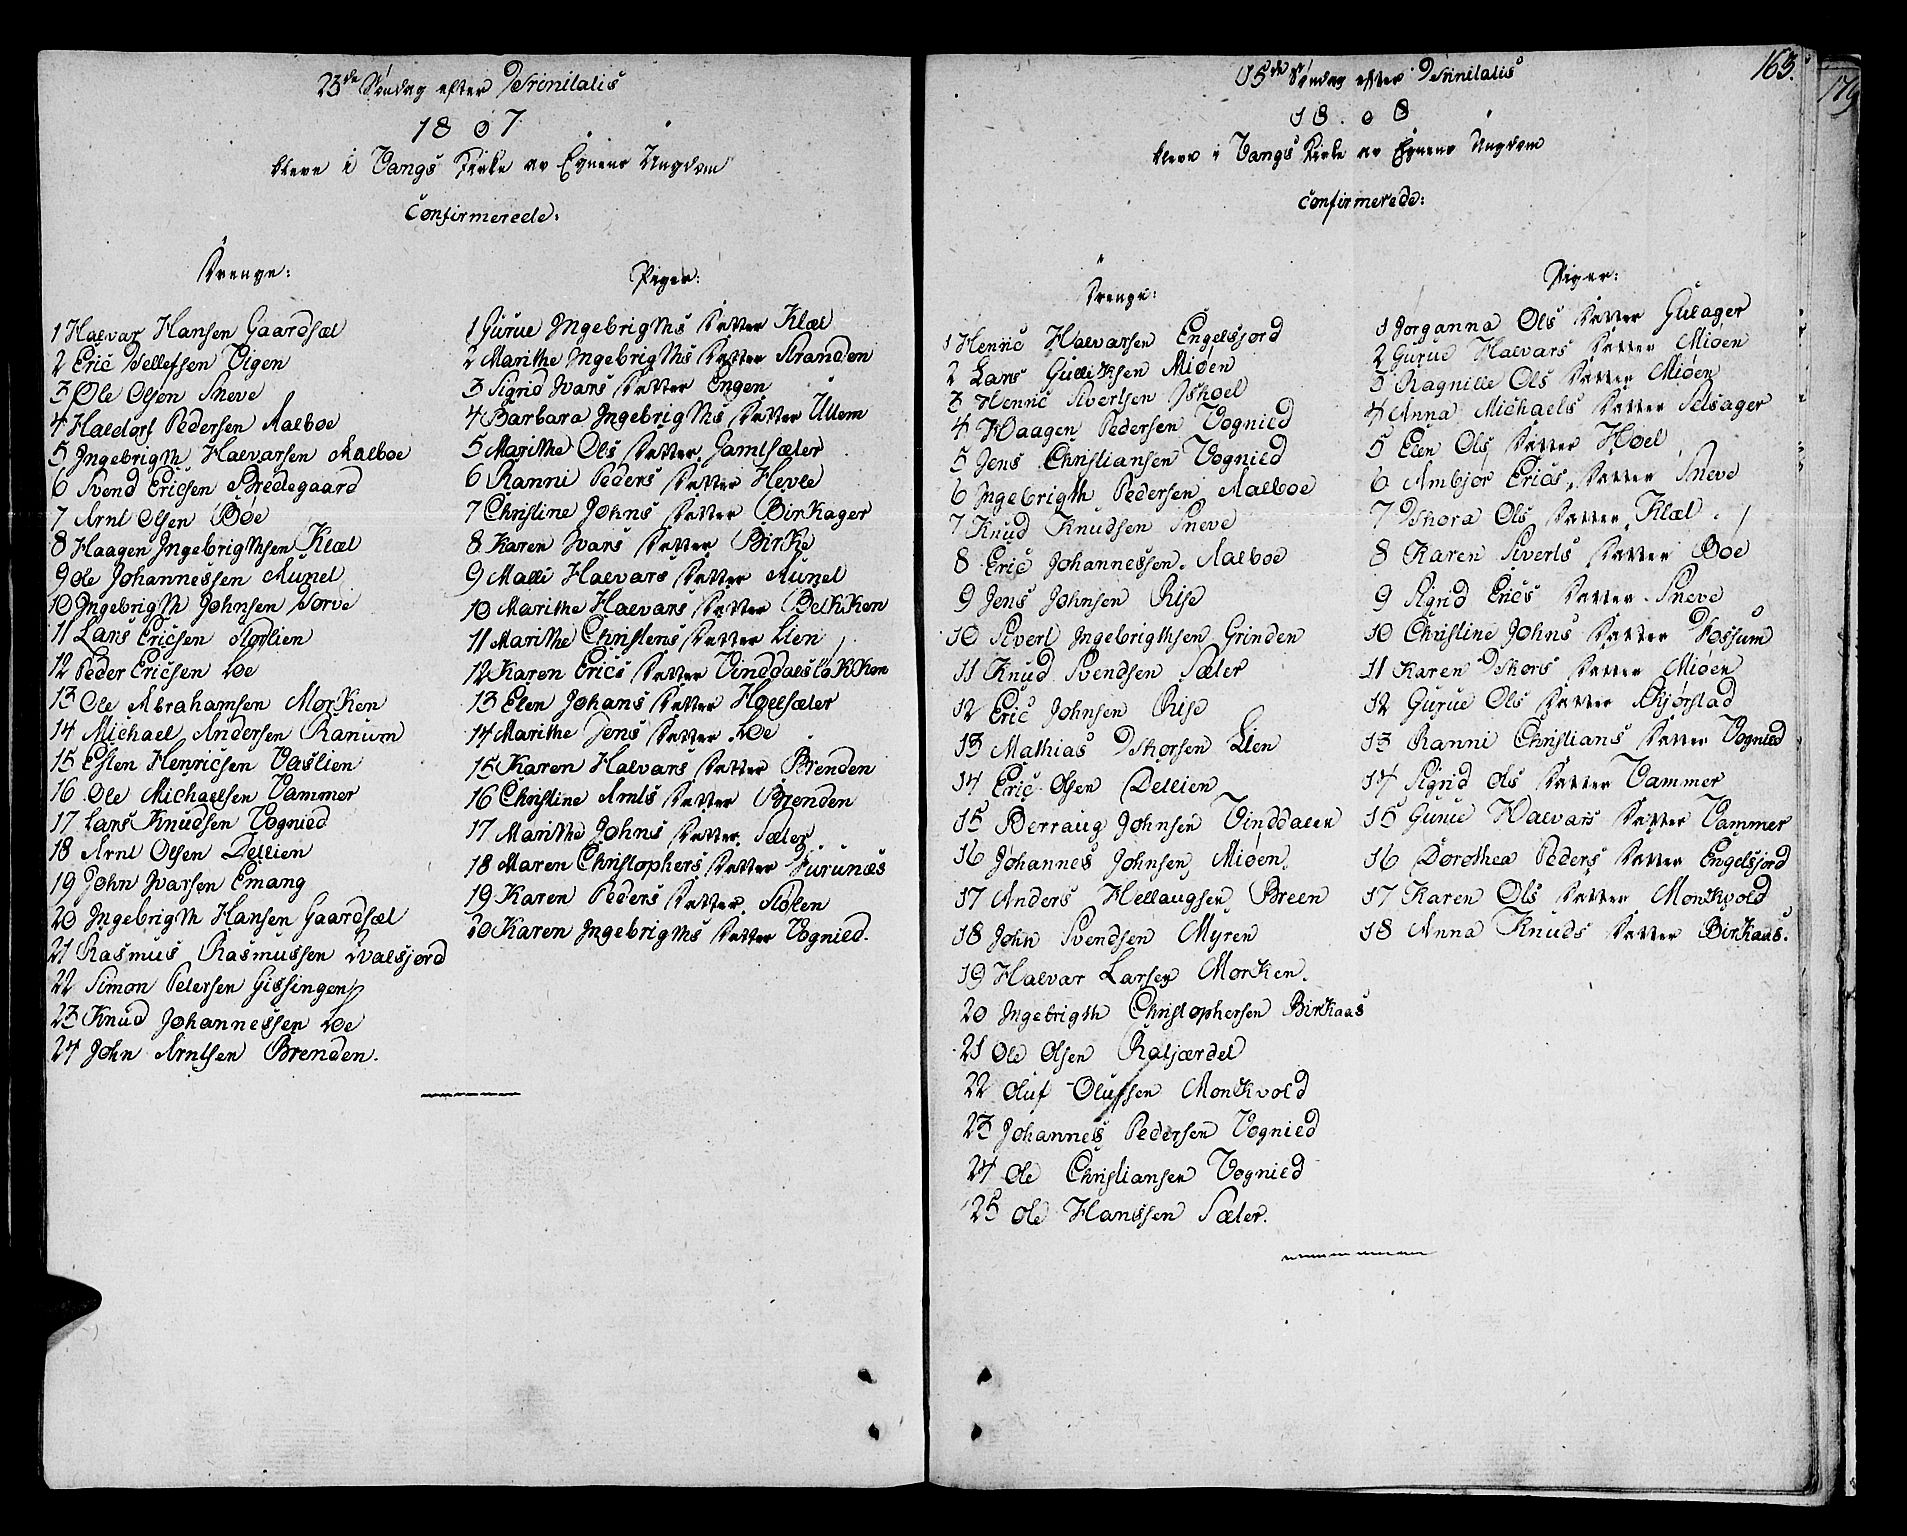 23de Søndag efter Trinitatis
1807
bleve i Vangs Kirke av Egnens Ungdom
Confirmerede:
Drenge:
1 Halvar Hansen Gaardsæl
2 Eric Dellefsen Vigen
3 Ole Olsen Sneve
4 Haldorf Pedersen Aalboe
5 Ingebrigth Halvarsen Aalboe
6 Svend Ericsen Bredegaard
7 Arnt Olsen Boe
8 Haagen Ingebrigthsen Klæl
9 Ole Johannessen Aunel
10 Ingebrigth Johnsen Sorve
11 Lars Ericsen Storlien
12 Peder Ericsen Loe
13 Ole Abrahamsen Morken
14 Michael Andersen Ranum
15 Esten Henricsen Vaslien
16 Ole Michaelsen Vammer
17 Lars Knudsen Vognied
18 Arnt Olsen Dellien
19 John Ivarsen Emang
20 Ingebrigth Hansen Gaardsæl
21 Rasmus Rasmussen Hvalsjord
22 Simon Petersen Gissingen
23 Knud Johannessen Loe
24 John Arntsen Brenden.
Piger:
1 Gurue Ingebrigths Datter Klæl
2 Marithe Ingebrigths Datter Stranden
3 Sigrid Ivars Datter Engen
4 Barbara Ingebrigths Datter Ullem
5 Marithe Ols Datter Gamlsæter
6 Ranni Peders Datter Hevle
7 Christine Johns Datter Birkager
8 Karen Ivars Datter Birke
9 Malli Halvars Datter Aunel
10 Marithe Halvars Datter Bekken
11 Marithe Christens Datter Lien
12 Karen Erics Datter Vinddalsløkken
13 Elen Johans Datter Hoelsæter
14 Marithe Jens Datter Loe
15 Karen Halvars Datter Brenden
16 Christine Arnts Datter Brenden
17 Marithe Johns Datter Sæter
18 Maren Christophers Datter Furunæs
19 Karen Peders Datter Stølen
20 Karen Ingebrigths Datter Vognied.
163.
15de Søndag efter Trinitatis
1808
bleve i Vangs Kirke av Egnens Ungdom
Confirmerede:
Drenge:
1 Henric Halvarsen Engelsjord
2 Lars Gulliksen Mioen
3 Henric Sivertsen Ishoel
4 Haagen Pedersen Vognied
5 Jens Christiansen Vognied
6 Ingebrigth Pedersen Aalboe
7 Knud Knudsen Sneve
8 Eric Johannessen Aalboe
9 Jens Johnsen Rise
10 Sivert Ingebrigthsen Grinden
11 Knud Svendsen Sæter
12 Eric Johnsen Rise
13 Mathias Thorsen Lien
14 Eric Olsen Dellien
15 Berraug Johnsen Vinddalen
16 Johannes Johnsen Mioen
17 Anders Hellaugsen Breen
18 John Svendsen Myren
19 Halvar Larsen Morken.
20 Ingebrigth Christophersen Birkaas
21 Ole Olsen Raljærdel
22 Oluf Olufsen Monkvold
23 Johannes Pedersen Vognied
24 Ole Christiansen Vognied
25 Ole Hanssen Sæter.
Piger:
1 Jorganna Ols Datter Gulager
2 Gurue Halvars Datter Mioen
3 Ragnille Ols Datter Mioen
4 Anna Michaels Datter Selsager
5 Elen Ols Datter Hoel
6 Ambjor Erics Datter Sneve
7 Thora Ols Datter Klæl
8 Karen Siverts Datter Boe
9 Sigrid Erics Datter Sneve
10 Christine Johns Datter Fossum
11 Karen Thors Datter Mioen
12 Gurue Ols Datter Skjørstad
13 Ranni Christians Datter Vognied
14 Sigrid Ols Datter Vammer
15 Gurue Halvars Datter Vammer
16 Dorothea Peders Datter Engelsjord
17 Karen Ols Datter Monkvold
18 Anna Knuds Datter Birkaas.